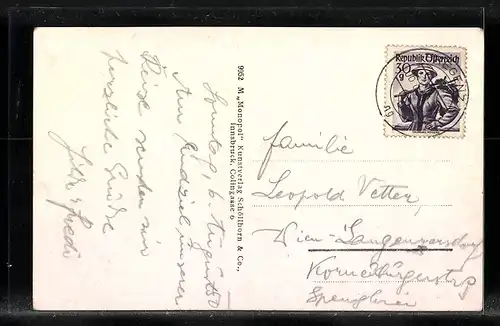 Sonntag, 6. August 50
Am Endziel unserer
Reise senden wir
herzliche Grüße
Hilde & Fredi
9952 M „Monopol" Kunstverlag Schöllhorn & Co.,
Innsbruck, Colingasse 6
Republik Österreich
30
g
Familie
Leopold Vetter,
Wien-Langenzersdorf
Korneuburgerstr.
Spenglerei